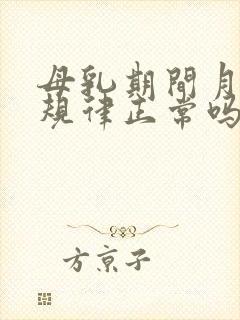 母乳期間月
規律正常吗
方京子